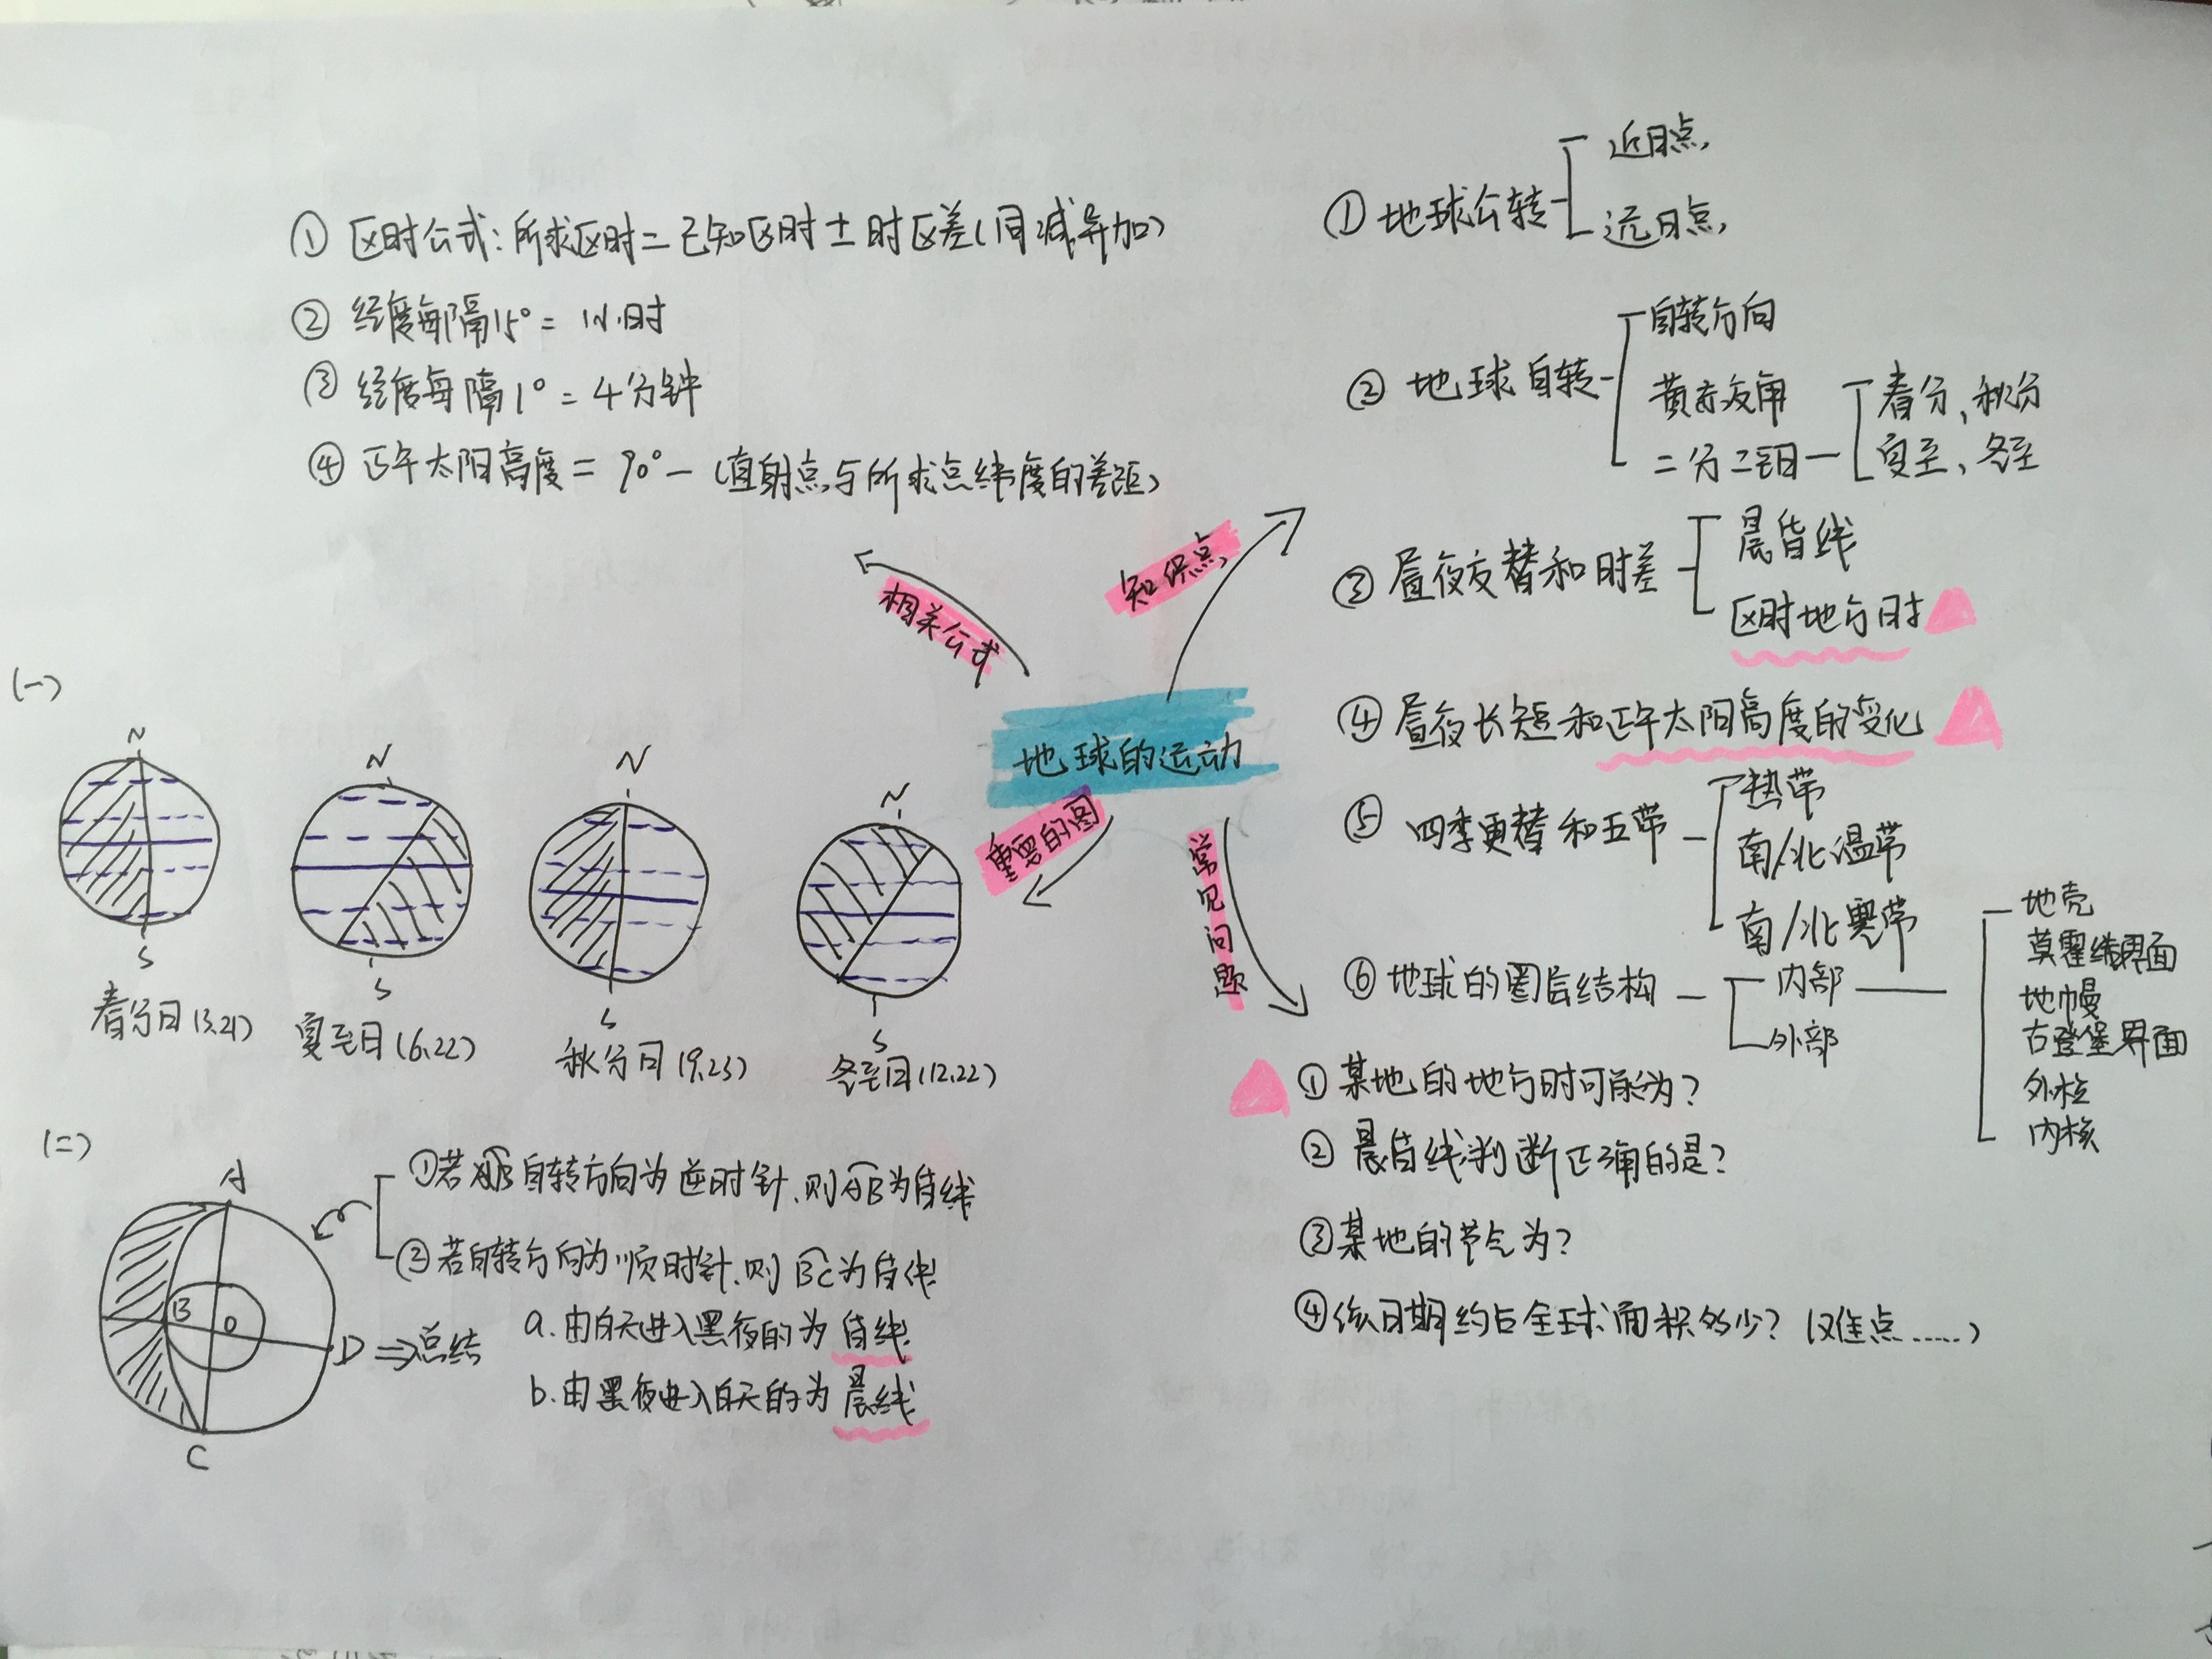 ① 区时公式:所求区时=已知区时±时区差(同减异加)
② 经度每隔15°=1小时
③ 经度每隔1°=4分钟
④ 正午太阳高度=90°-(直射点与所求点纬度的差距)
相关公式
知识点
地球的运动
重要的图
常见问题
① 地球公转
近日点
远日点
② 地球自转
自转方向
黄赤交角
二分二至日
春分、秋分
夏至、冬至
③ 昼夜交替和时差
晨昏线
区时地方时
④ 昼夜长短和正午太阳高度的变化
⑤ 四季更替和五带
热带
南/北温带
南/北寒带
⑥ 地球的圈层结构
内部
外部
地壳
莫霍络界面
地幔
古登堡界面
外核
内核
(一)
N
S
春分日(3.21)
N
S
夏至日(6.22)
N
S
秋分日(9.23)
N
S
冬至日(12.22)
(二)
A
B
O
D
C
①若自转方向为逆时针,则AB为昏线
②若自转方向为顺时针,则BC为昏线
⇒总结
a.由白天进入黑夜的为昏线
b.由黑夜进入白天的为晨线
① 某地的地方时可能为?
② 晨昏线判断正确的是?
③某地的节气为?
④该日期约占全球面积多少?(难点......)